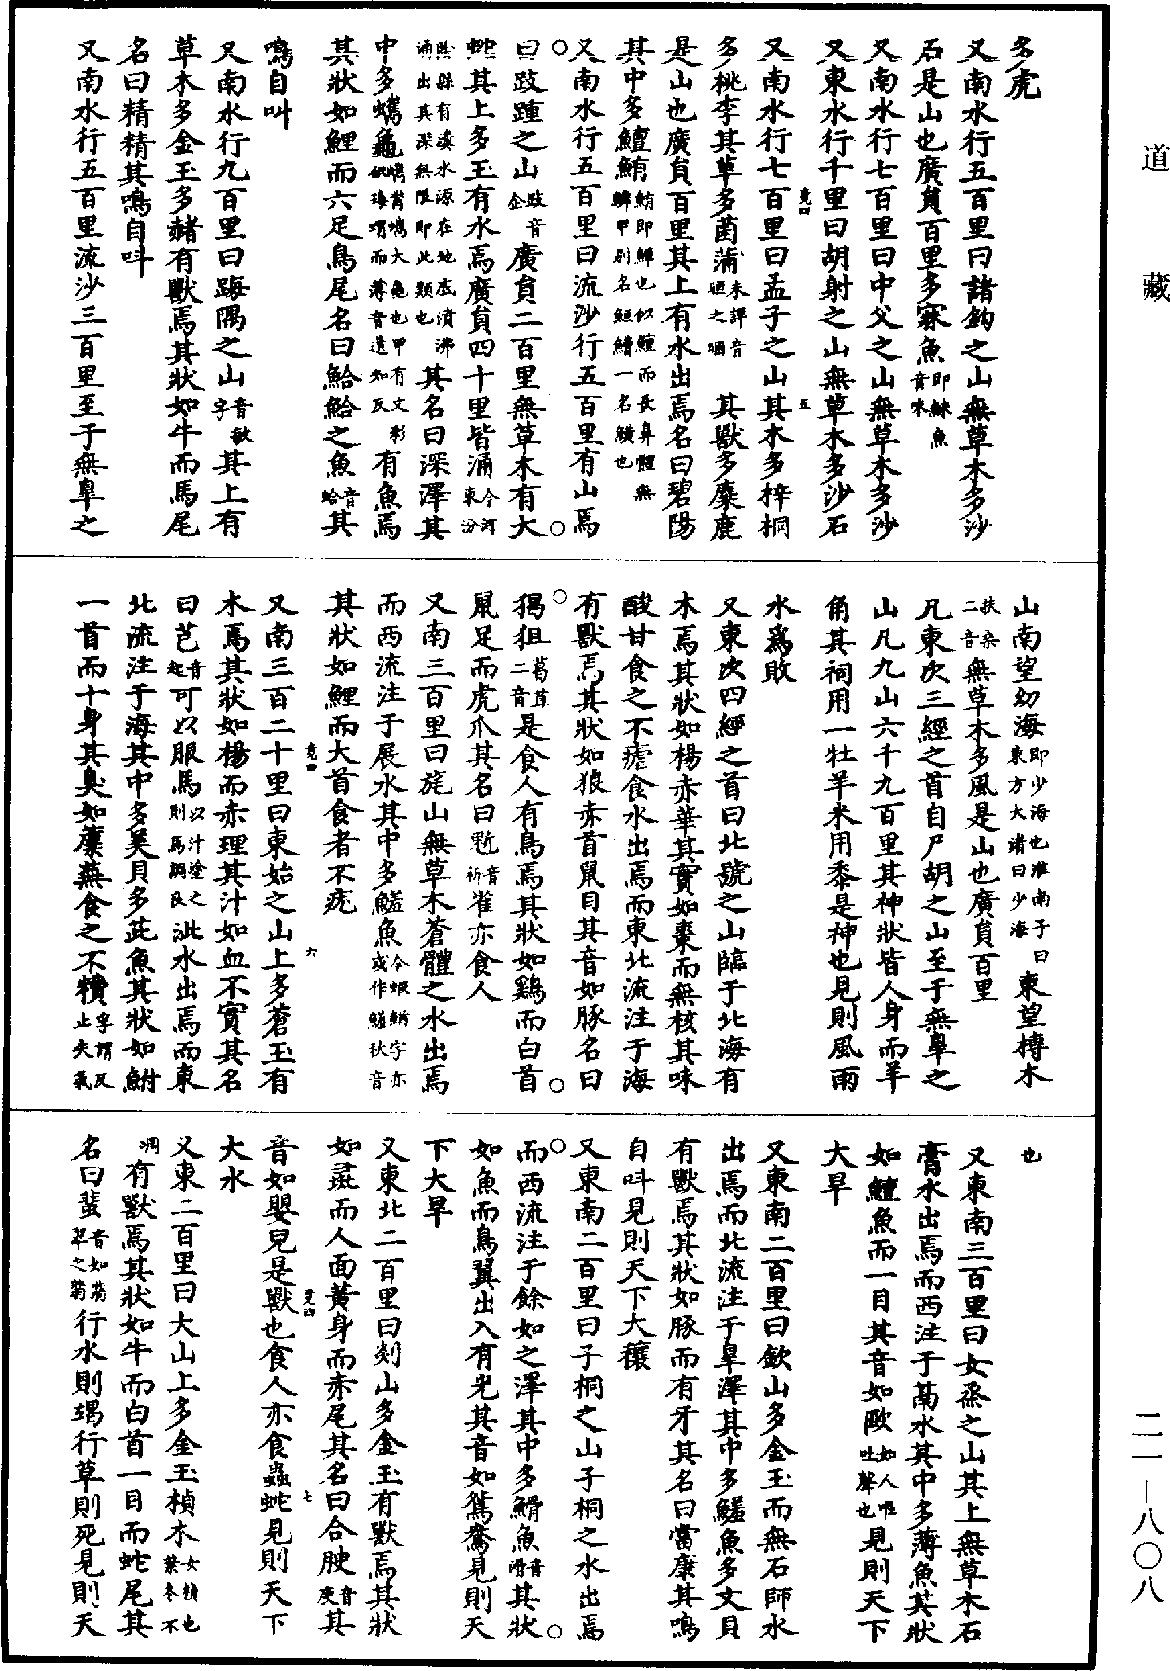 道藏
多虎
又南水行五百里曰諸鉤之山無草木多沙
石是山也廣員百里多寐魚即鮇魚音味
又南水行七百里曰中父之山無草木多沙
又東水行千里曰胡射之山無草木多沙石
竟四 五
又南水行七百里曰孟子之山其木多梓桐
多桃李其草多菌蒲未詳音䐃之䐃其獸多麋鹿
是山也廣員百里其上有水出焉名曰碧陽
其中多鱣鮪鮪即鱏也似鱣而長鼻體無鱗甲別名䱭䲛一名鱑也
又南水行五百里曰流沙行五百里有山焉
曰跂踵之山跂音企廣員二百里無草木有大
蛇其上多玉有水焉廣員四十里皆涌今河東汾
陰縣有瀵水源在地底濆沸涌出其深無限即此類也其名曰深澤其
中多蠵龜蠵觜蠵大龜也甲有文彩似瑇瑁而薄音遺知反有魚焉
其狀如鯉而六足鳥尾名曰鮯鮯之魚音蛤其
鳴自叫
又南水行九百里曰踇隅之山音敏字其上有
草木多金玉多赭有獸焉其狀如牛而馬尾
名曰精精其鳴自叫
又南水行五百里流沙三百里至于無皐之
山南望幼海即少海也淮南子曰東方大渚曰少海東望榑木
扶桑二音無草木多風是山也廣員百里
凡東次三經之首自尸胡之山至于無皐之
山凡九山六千九百里其神狀皆人身而羊
角其祠用一牡羊米用黍是神也見則風雨
水為敗
又東次四經之首曰北號之山臨于北海有
木焉其狀如楊赤華其實如棗而無核其味
酸甘食之不瘧食水出焉而東北流注于海
有獸焉其狀如狼赤首鼠目其音如豚名曰
猲狙葛苴二音是食人有鳥焉其狀如鷄而白首
鼠足而虎爪其名曰鬿音祈雀亦食人
又南三百里曰旄山無草木蒼體之水出焉
而西流注于展水其中多鱃魚今蝦䱂字亦或作鱃秋音
其狀如鯉而大首食者不疣
竟四 六
又南三百二十里曰東始之山上多蒼玉有
木焉其狀如楊而赤理其汁如血不實其名
曰芑音起可以服馬以汁塗之則馬調良泚水出焉而東
北流注于海其中多美貝多茈魚其狀如鮒
一首而十身其臭如蘪蕪食之不𥧔孚謂反止失氣
也
又東南三百里曰女烝之山其上無草木石
膏水出焉而西注于鬲水其中多薄魚其狀
如鱣魚而一目其音如歐如人嘔吐聲也見則天下
大旱
又東南二百里曰欽山多金玉而無石師水
出焉而北流注于皐澤其中多鱃魚多文貝
有獸焉其狀如豚而有牙其名曰當康其鳴
自叫見則天下大穰
又東南二百里曰子桐之山子桐之水出焉
而西流注于餘如之澤其中多䱻魚音滑其狀
如魚而鳥翼出入有光其音如鴛鴦見則天
下大旱
又東北二百里曰剡山多金玉有獸焉其狀
如彘而人面黃身而赤尾其名曰合㺊音庾其
竟四 七
音如嬰兒是獸也食人亦食蟲蛇見則天下
大水
又東二百里曰大山上多金玉楨木女楨也葉冬不
凋有獸焉其狀如牛而白首一目而蛇尾其
名曰蜚音如翡翠之翡行水則竭行草則死見則天
二一—八〇八